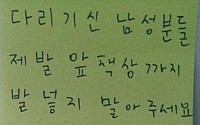 다리기신 남성분들
제발 앞책상까지
발 넣지 말아주세요